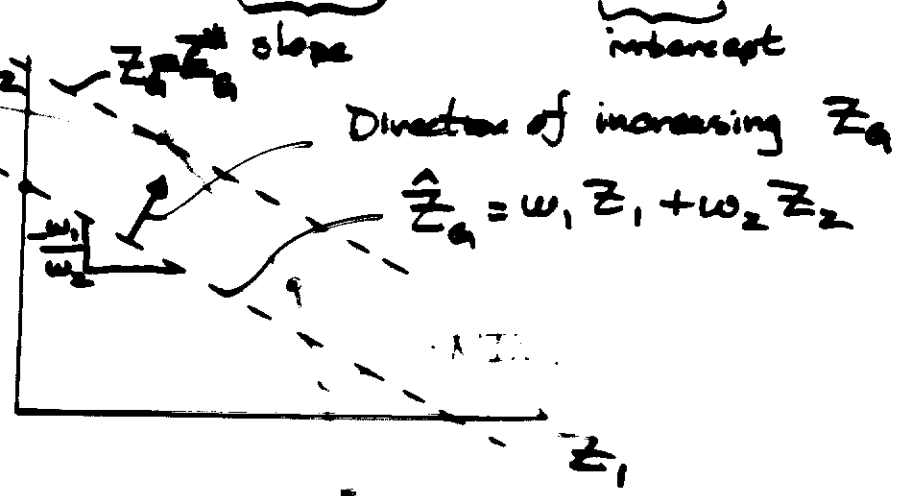 slope intercept
Z_G = Z_G^*
Direction of increasing Z_G
Ẑ_G = w_1 Z_1 + w_2 Z_2
-w_1/w_2 1
Z_1